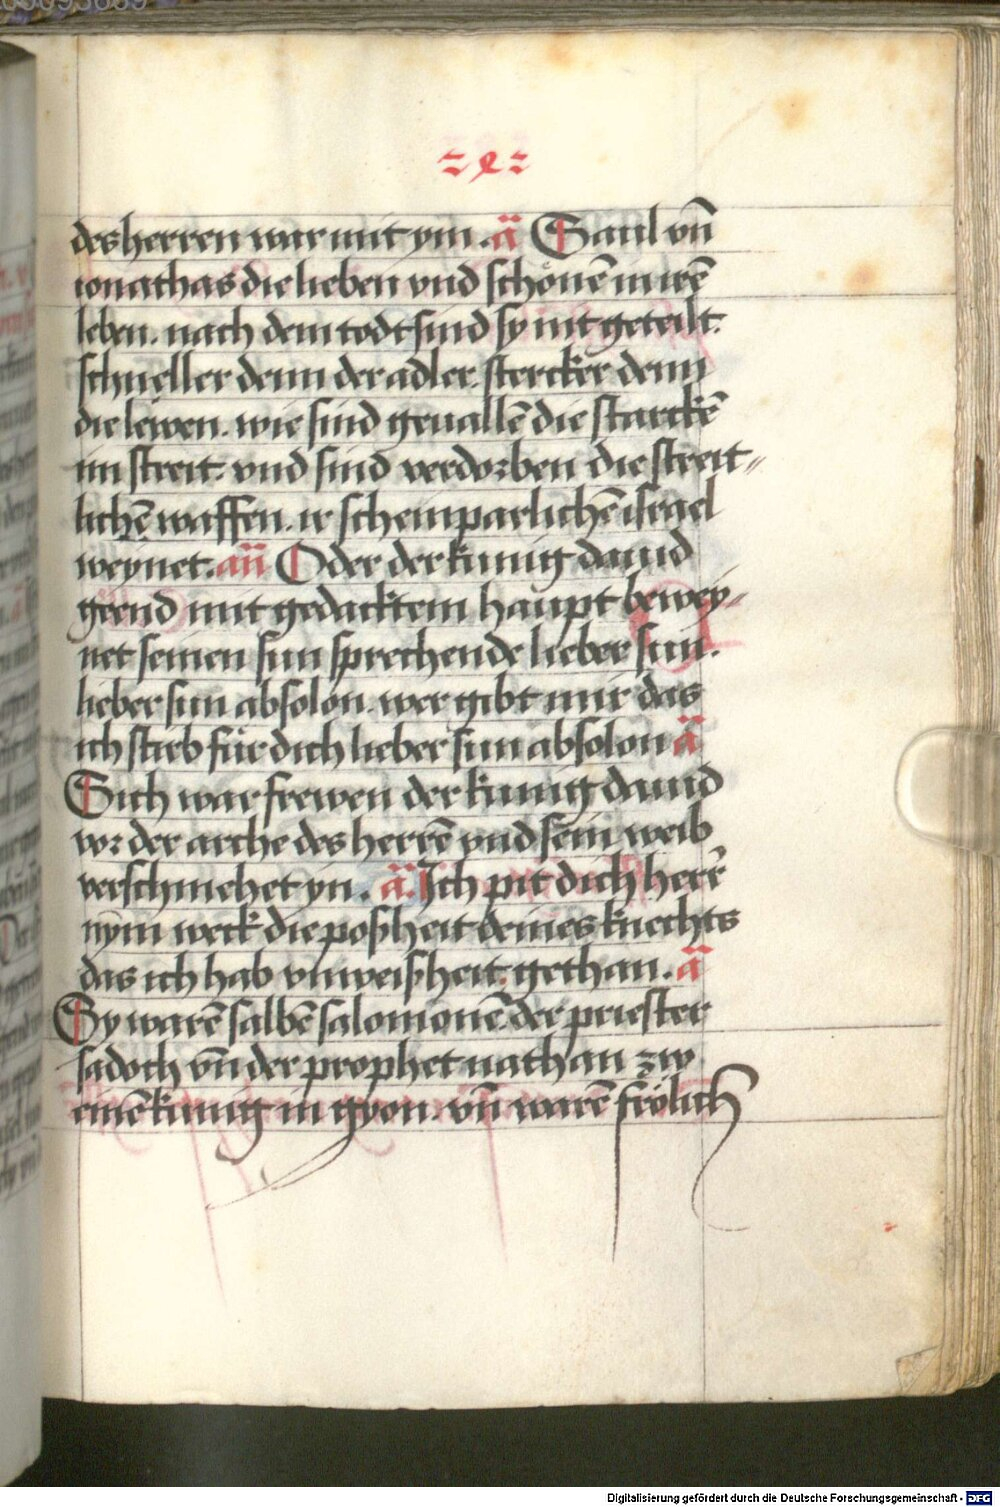 des herren war mit ym. a̅ Saul vn̄
ionathas die lieben vnd schönē in irē
leben. nach dem todt sind sy nit geteilt.
schneller denn der adler. stercker denn
die lewen. wie sind geuallē die starckē
im streit. vnd sind verdorben die streit〃
lichē waffen. ir scheinparlichē israel
weynet. an̄ Oder der kunig dauid
geend mit gedacktem haupt bewey〃
net seinen sun sprechende lieber sun.
lieber sun absolon. wer gibt mir das
ich stirb für dich lieber sun absolon a̅
Sich war frewen der kunig dauid
vor der arche des herrē vnd sein weib
verschmehet yn. a̅. Ich pit dich herr̄
nym weck die posheit deines knechts
das ich hab vnweisheit gethan. a̅
Sy warē salbē salomonē der priester
sadoch vn̄ der prophet nathan zw
einē kunig in gyon. vn̄ warē frölich
Digitalisierung gefördert durch die Deutsche Forschungsgemeinschaft - DFG